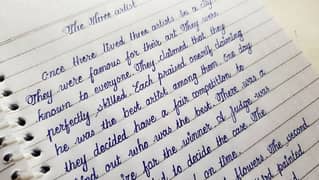 The Three artist
Once there lived three artists in a city.
They were famous for their art. They were
known to everyone. They claimed that they
perfectly skilled. Each praised oneself claiming
he was the best artist among them. One day
they decided have a fair competition to
find out who was the best. There was a
for the winner. A judge was
to decide the case. The
on time.
flowers. The second
painted